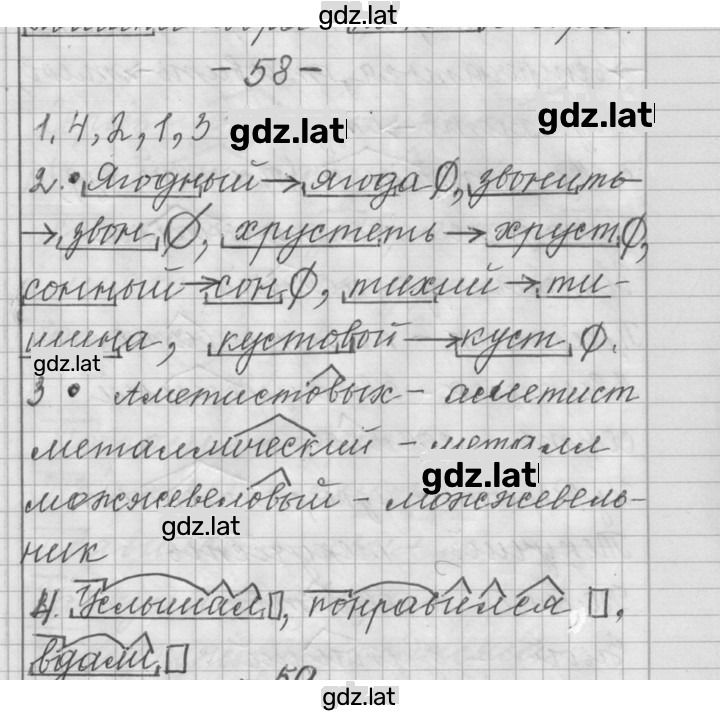 gdz.lat
- 58 -
1. 4, 2, 1, 3
gdz.lat
gdz.lat
2. • Ягодный → ягода ∅, звонить
→ звон ∅, хрустеть → хруст ∅,
сонный → сон ∅, тихий → ти-
шина, кустовой → куст ∅.
gdz.lat
3 • Аметистовых - аметист
металлический - металл
gdz.lat
можжевеловый - можжевель-
gdz.lat
ник
4. Услышал□, понравился, □,
вдали □
59
gdz.lat